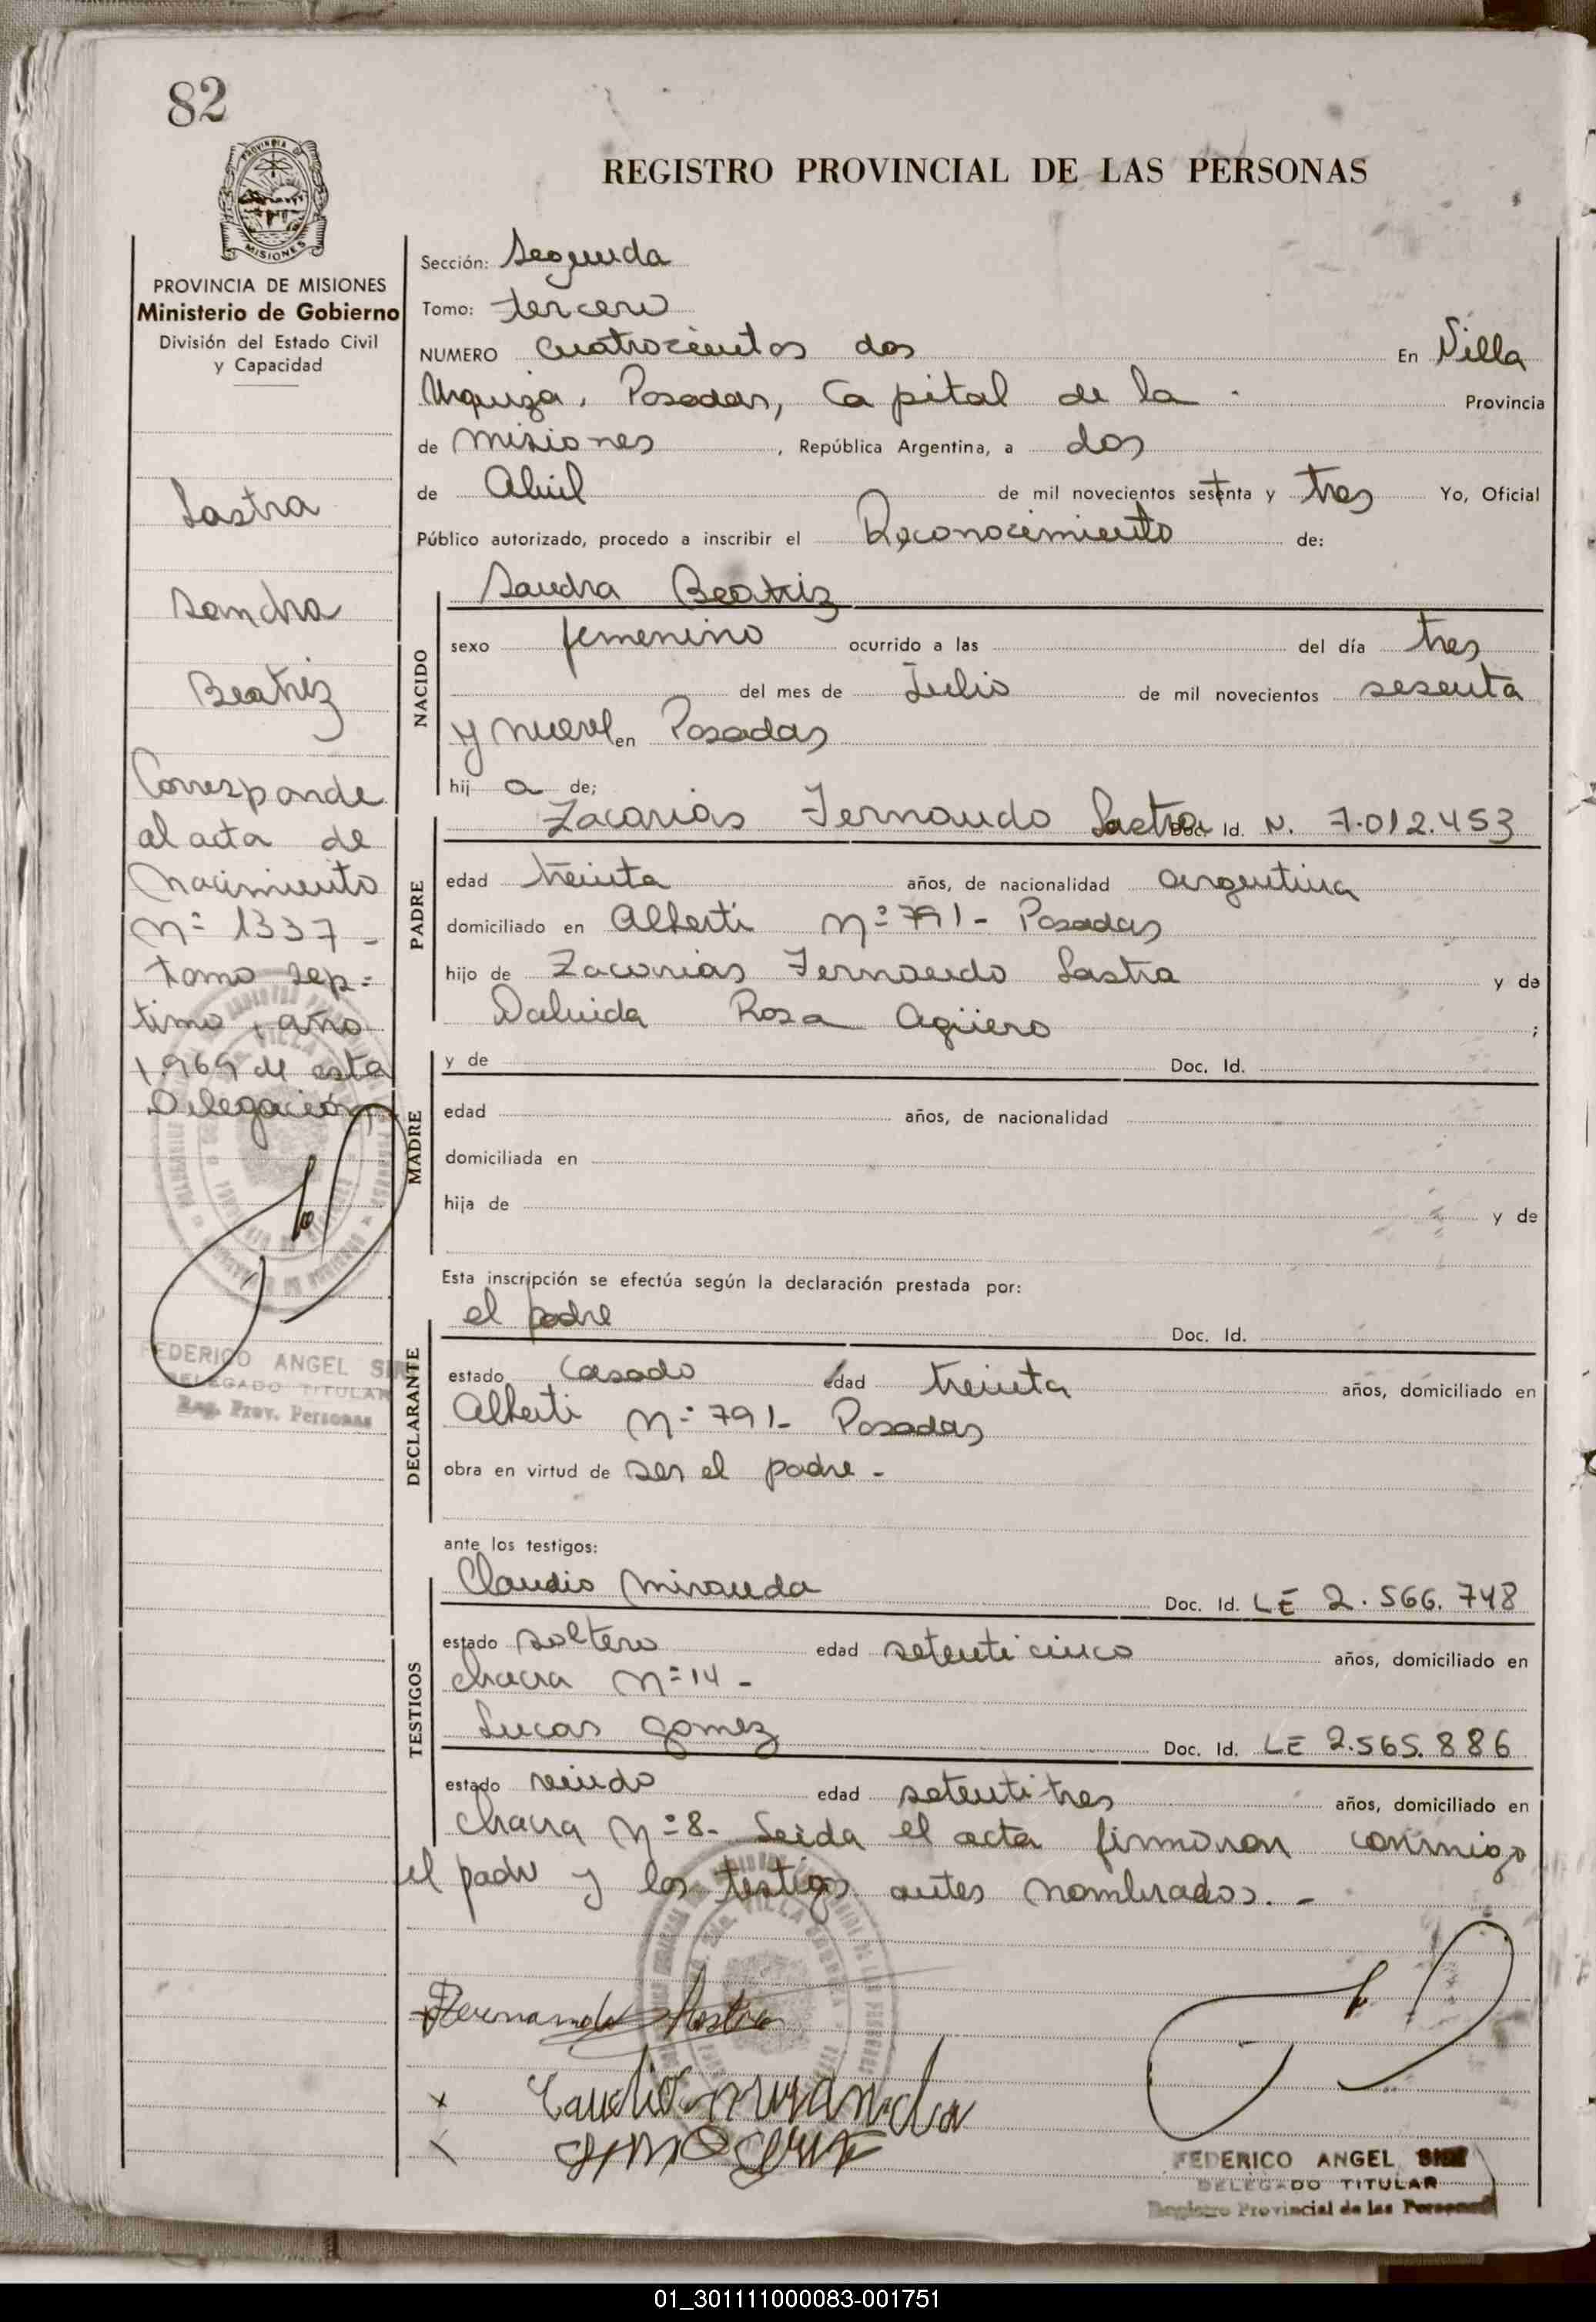 82
PROVINCIA DE
MISIONES
REGISTRO PROVINCIAL DE LAS PERSONAS
PROVINCIA DE MISIONES
Ministerio de Gobierno
División del Estado Civil
y Capacidad
Lastra
Sandra
Beatriz
Corresponde
al acta de
Nacimiento
Nº 1337 -
tomo sep=
timo, año
1.969 de esta
Delegación
FEDERICO ANGEL
DELEGADO TITULAR
Reg. Prov. Personas
Sección: Segunda
Tomo: tercero
NUMERO cuatrocientos dos En Villa
Urquiza, Posadas, Capital de la - Provincia
de Misiones, República Argentina, a dos
de Abril de mil novecientos setenta y tres Yo, Oficial
Público autorizado, procedo a inscribir el Reconocimiento de:
Sandra Beatriz
NACIDO
sexo femenino ocurrido a las del día tres
del mes de Julio de mil novecientos sesenta
y nueve en Posadas
hij a de;
PADRE
Zacarias Fernando Lastra Doc. Id. N. 7.012.453
edad treinta años, de nacionalidad argentina
domiciliado en Alberti Nº 791 - Posadas
hijo de Zacarias Fernando Lastra y de
Rosa Agüero ;
MADRE
y de Doc. Id.
edad años, de nacionalidad
domiciliada en
hija de y de
Esta inscripción se efectúa según la declaración prestada por:
DECLARANTE
el padre Doc. Id.
estado casado edad treinta años, domiciliado en
Alberti Nº 791- Posadas
obra en virtud de ser el padre -
ante los testigos:
TESTIGOS
Claudio Miranda Doc. Id. LE 2.566.748
estado soltero edad setenticinco años, domiciliado en
chacra Nº 14 -
Lucas Gomez Doc. Id. LE 2.565.886
estado viudo edad setentitres años, domiciliado en
chacra Nº 8- Leida el acta firmaron conmigo
el padre y los testigos antes nombrados. -
Fernando Lastra
x Claudio Miranda
FEDERICO ANGEL
DELEGADO TITULAR
Registro Provincial de las Personas
01_301111000083-001751